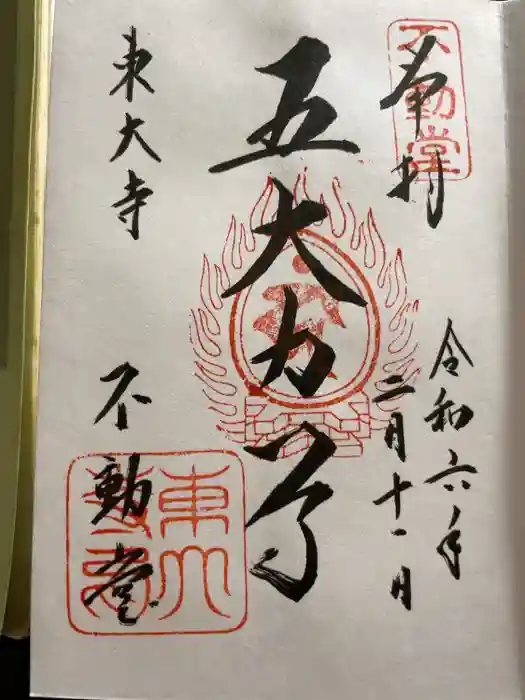 不動堂
奉拝
令和六年
二月十一日
五大力尊
東大寺
不動堂
東大